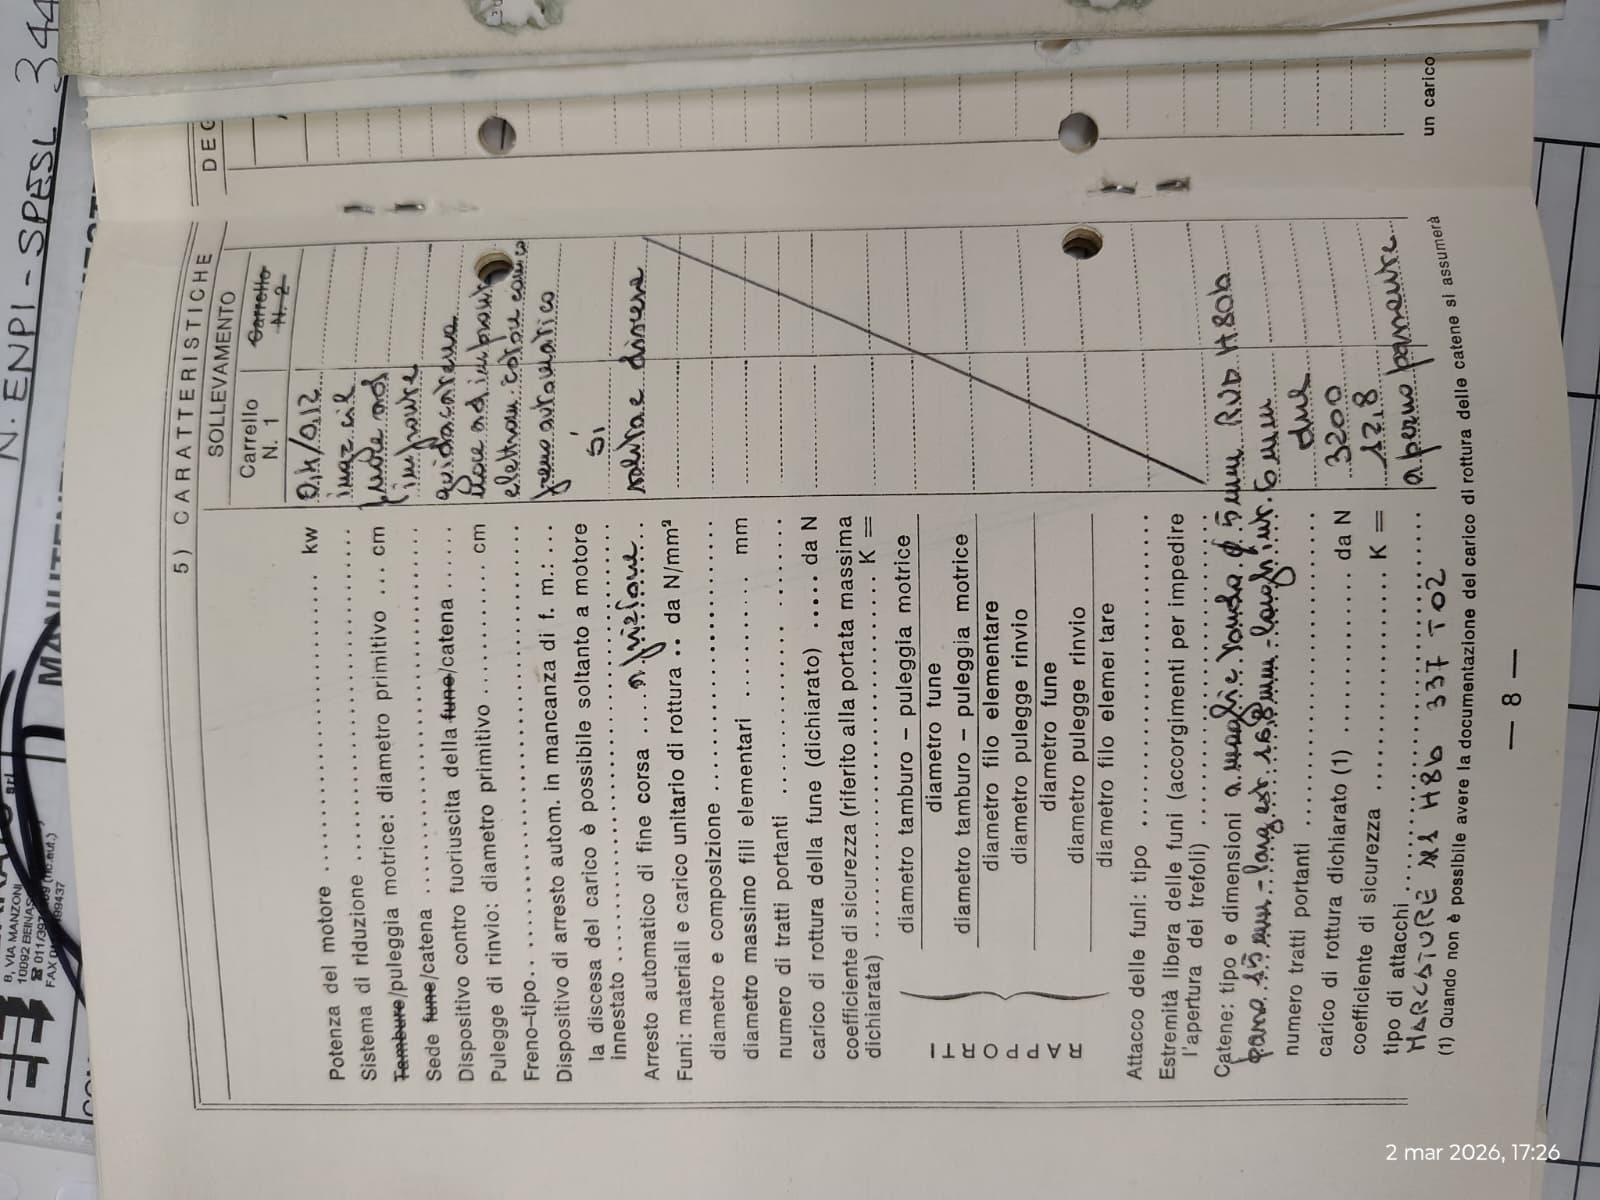 N. ENPI - SPESL 344
srl
8, VIA MANZONI
10092 BEINASCO
FAX 01
5) CARATTERISTICHE
SOLLEVAMENTO
DEG
Carrello
N. 1
Carrello
N. 2
Potenza del motore .......... kw 0,4/0,12
Sistema di riduzione ..........
Tamburo/puleggia motrice: diametro primitivo .... cm
Sede fune/catena .......... impronte
Dispositivo contro fuoriuscita della fune/catena ...... guidacatena
Pulegge di rinvio: diametro primitivo .......... cm
Freno-tipo..
Dispositivo di arresto autom. in mancanza di f. m.: ... freno automatico
la discesa del carico è possibile soltanto a motore
innestato .......... sì
Arresto automatico di fine corsa .... a frizione .. salita e discesa
Funi: materiali e carico unitario di rottura .. da N/mm²
diametro e composizione ..........
diametro massimo fili elementari .......... mm
numero di tratti portanti ..........
carico di rottura della fune (dichiarato) .... da N
coefficiente di sicurezza (riferito alla portata massima
dichiarata) .......... K =
I
T
R
O
P
P
A
R
diametro tamburo – puleggia motrice
diametro fune
diametro tamburo – puleggia motrice
diametro filo elementare
diametro pulegge rinvio
diametro fune
diametro pulegge rinvio
diametro filo elementare
Attacco delle funi: tipo ..........
Estremità libera delle funi (accorgimenti per impedire
l'apertura dei trefoli) ..........
Catene: tipo e dimensioni a maglie tonda ϕ 5 mm RUD H80b
15 mm - larg est. 18 mm - largh int. 6 mm
numero tratti portanti .......... due
carico di rottura dichiarato (1) .......... da N 3200
coefficiente di sicurezza .......... K = 12,8
tipo di attacchi .......... a perno passante
MARCATURE H8b 337 T02
(1) Quando non è possibile avere la documentazione del carico di rottura delle catene si assumerà
un carico
— 8 —
2 mar 2026, 17:26